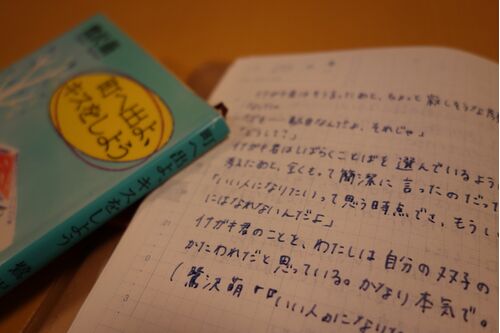 鷺沢萠
町へ出よ、
キスをしよう
町へ出よ、キスをしよう
鷺沢
イナガキ君はそう言ったあと、ちょっと寂しそうな
「どうして?」
イナガキ君はしばらくことばを選んでいるよう
考えたあと、全くもって簡潔に言ったのだっ
「いい人になりたいって思う時点でさ、もうい
にはなれないんだよ」
イナガキ君のことを、わたしは自分の双子の
かたわれだと思っている。かなり本気で。
(鷺沢萠「『いい人』になりた